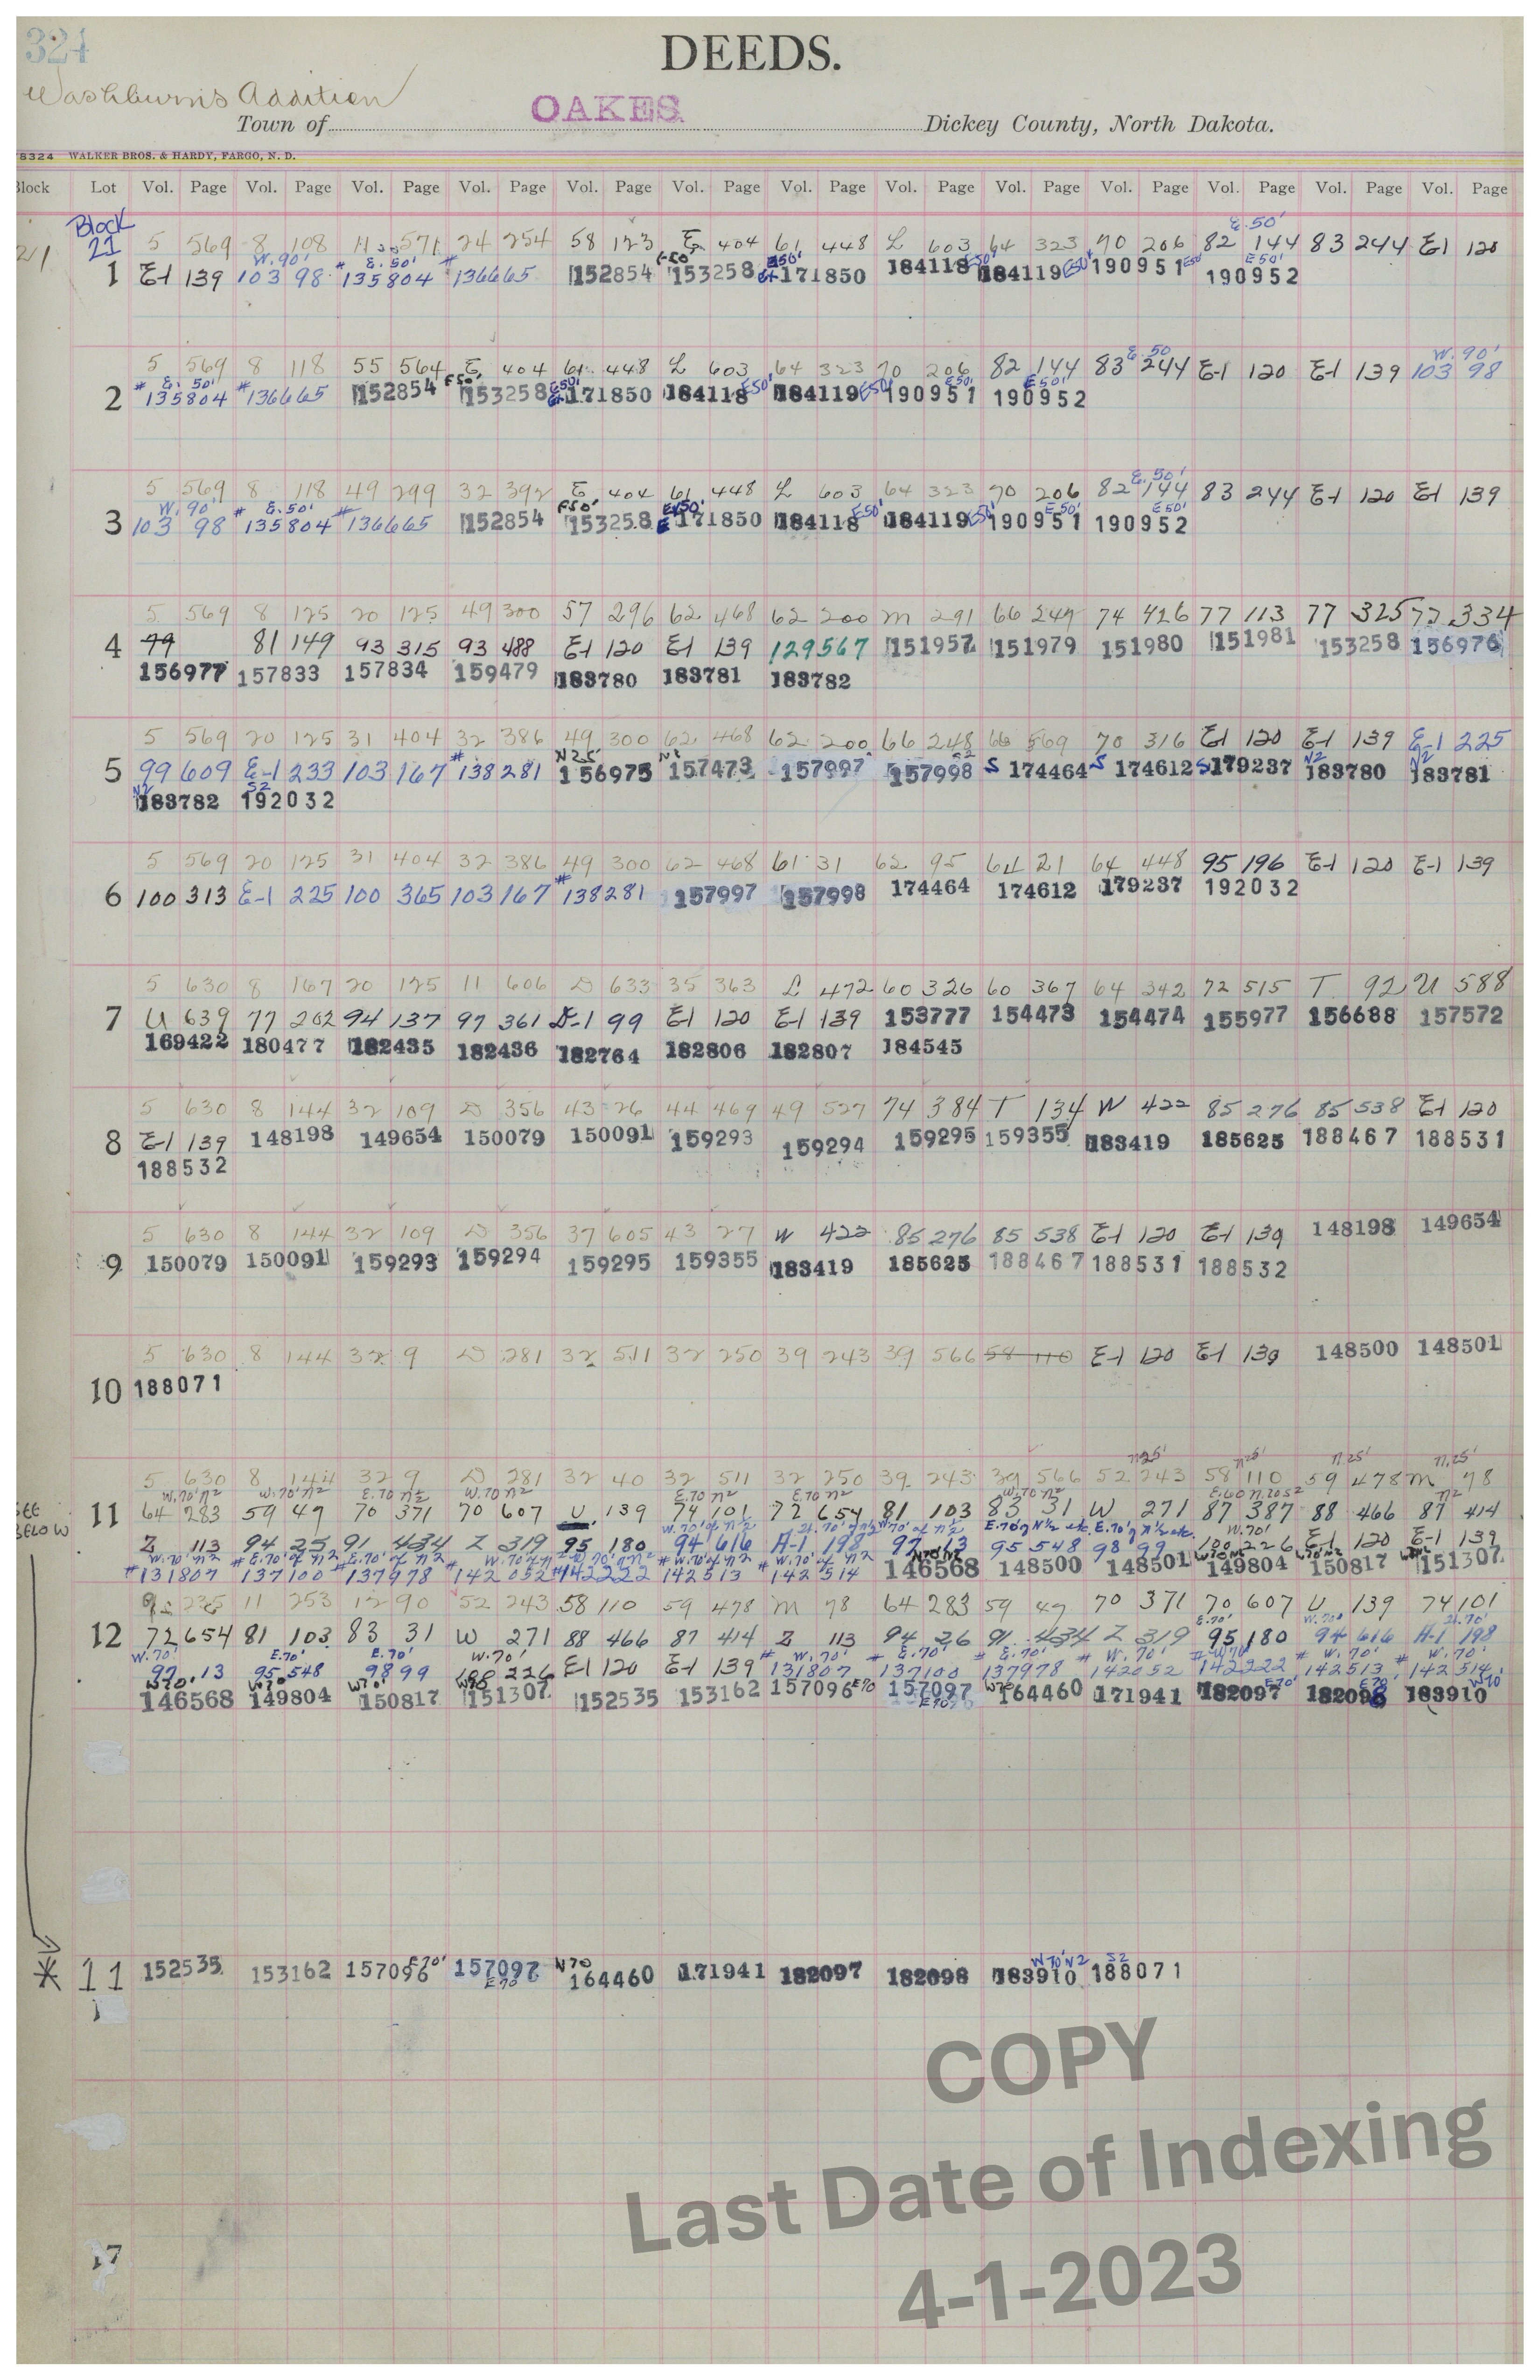 324
DEEDS.
Washburn's Addition
Town of OAKES Dickey County, North Dakota.
8324 WALKER BROS. & HARDY, FARGO, N. D.
Block Lot Vol. Page Vol. Page Vol. Page Vol. Page Vol. Page Vol. Page Vol. Page Vol. Page Vol. Page Vol. Page Vol. Page Vol. Page Vol. Page
Block 21 E. 50'
21 5 569 8 108 11 571 24 254 58 123 E 404 61 448 L 603 64 323 70 206 82 144 83 244 E-1 120
W. 90' E. 50' E50' E50' E50' E50' E50' E50'
1 E-1 139 103 98 # 135804 # 136665 152854 153258 171850 184118 184119 190951 190952
5 569 8 118 55 564 E 404 61 448 L 603 64 323 70 206 82 144 83 244 E-1 120 E-1 139 103 98
E. 50 W. 90'
2 # 135804 # 136665 152854 153258 171850 184118 184119 190951 190952
5 569 8 118 49 299 32 392 E 404 61 448 L 603 64 323 70 206 82 144 83 244 E-1 120 E-1 139
W. 90' E. 50'
3 103 98 # 135804 # 136665 152854 153258 171850 184118 184119 190951 190952
5 569 8 125 20 125 49 300 57 296 62 468 62 200 M 291 66 247 74 426 77 113 77 325 77 334
4 79 81 149 93 315 93 488 E-1 120 E-1 139 129567 151957 151979 151980 151981 153258 156976
156977 157833 157834 159479 183780 183781 183782
5 569 20 125 31 404 32 386 49 300 62 468 62 200 66 248 66 569 70 316 E-1 120 E-1 139 E-1 225
5 99 609 E-1 233 103 167 # 138281 N25' 156975 157473 157997 157998 S 174464 S 174612 S 179237 N2 183780 N2 183781
N2 183782 S2 192032
5 569 20 125 31 404 32 386 49 300 62 468 61 31 62 95 64 21 64 448 95 196 E-1 120 E-1 139
6 100 313 E-1 225 100 365 103 167 # 138281 157997 157998 174464 174612 179237 192032
5 630 8 167 20 125 11 606 D 633 35 363 L 472 60 326 60 367 64 342 72 515 T 92 U 588
7 U 639 77 202 94 137 97 361 D-1 99 E-1 120 E-1 139 153777 154473 154474 155977 156688 157572
169422 180477 182435 182436 182764 182806 182807 184545
5 630 8 144 32 109 D 356 43 26 44 469 49 527 74 384 T 134 W 422 85 276 85 538 E-1 120
8 E-1 139 148198 149654 150079 150091 159293 159294 159295 159355 183419 185625 188467 188531
188532
5 630 8 144 32 109 D 356 37 605 43 27 W 422 85 276 85 538 E-1 120 E-1 139 148198 149654
9 150079 150091 159293 159294 159295 159355 183419 185625 188467 188531 188532
5 630 8 144 32 9 D 281 32 511 32 250 39 243 39 566 58 110 E-1 120 E-1 139 148500 148501
10 188071
N25' N25' N.25' N.25'
5 630 8 144 32 9 D 281 32 40 32 511 32 250 39 243 39 566 52 243 58 110 59 478 M 78
SEE BELOW
11 64 283 59 49 70 371 70 607 U 139 74 101 72 654 81 103 83 31 W 271 87 387 88 466 87 414
Z 113 94 25 91 434 Z 319 95 180 94 616 A-1 198 97 13 95 548 98 99 100 226 E-1 120 E-1 139
# 131807 # 137100 # 137978 # 142052 # 142222 # 142513 # 142514 146568 148500 148501 149804 150817 151307
235 11 253 12 90 52 243 58 110 59 478 M 78 64 283 59 49 70 371 70 607 U 139 74 101
12 72 654 81 103 83 31 W 271 88 466 87 414 Z 113 94 26 91 434 Z 319 95 180 94 616 A-1 198
W. 70' E. 70' E. 70' W. 70'
97 13 95 548 98 99 100 226 E-1 120 E-1 139 # 131807 # 137100 # 137978 # 142052 # 142222 # 142513 # 142514
146568 149804 150817 151307 152535 153162 157096 E70 157097 164460 171941 182097 182098 183910
* 11 152535 153162 157096 E70' 157097 E70 W70 164460 171941 182097 182098 W70'N2 183910 S2 188071
17
COPY
Last Date of Indexing
4-1-2023